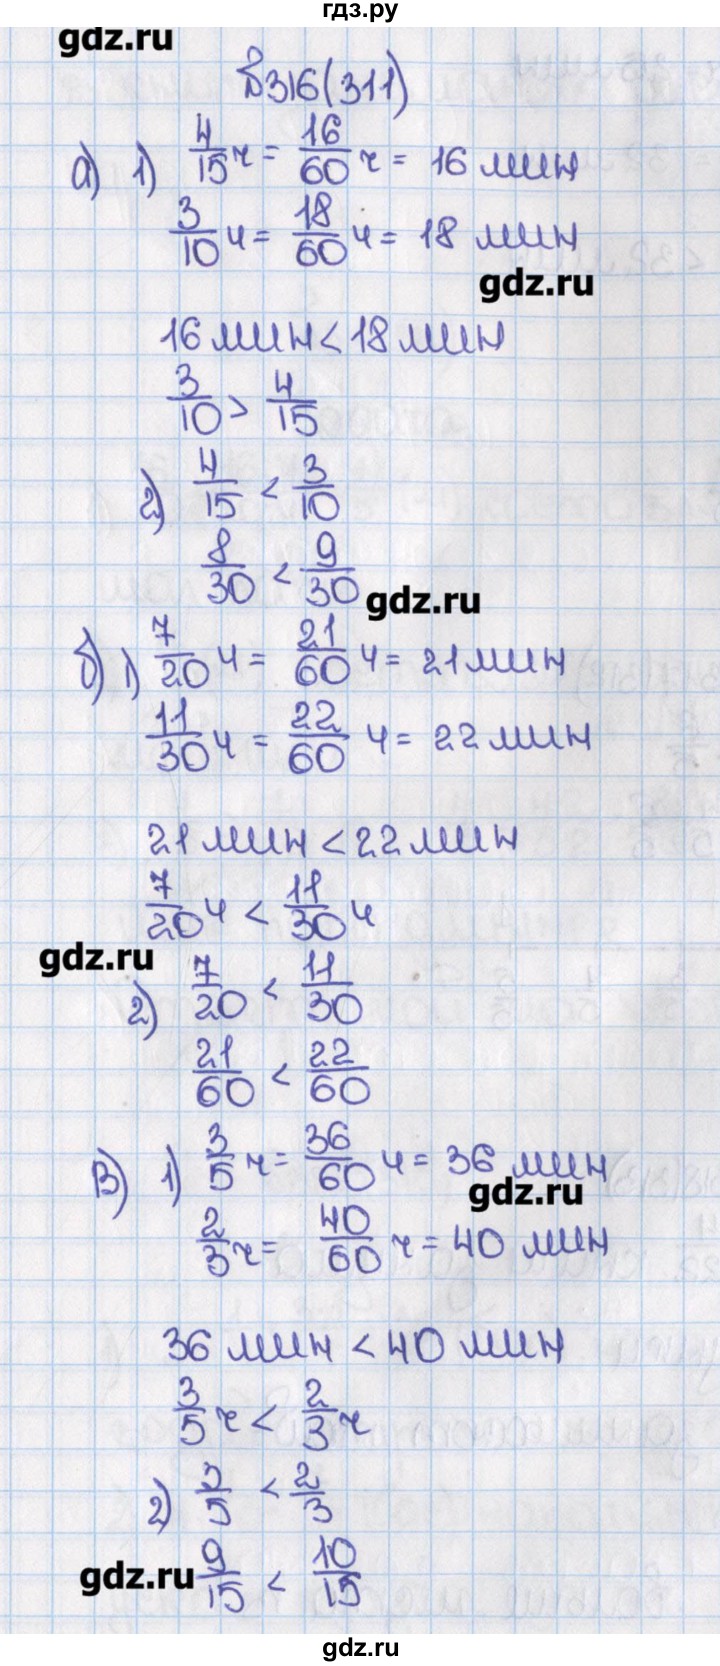 гдз.ру
gdz.ru
№316(311)
а) 1) 4/15 ч = 16/60 ч = 16 мин
3/10 ч = 18/60 ч = 18 мин
gdz.ru
16 мин < 18 мин
3/10 > 4/15
2) 4/15 < 3/10
8/30 < 9/30
gdz.ru
б) 1) 7/20 ч = 21/60 ч = 21 мин
11/30 ч = 22/60 ч = 22 мин
21 мин < 22 мин
7/20 ч < 11/30 ч
gdz.ru
2) 7/20 < 11/30
21/60 < 22/60
в) 1) 3/5 ч = 36/60 ч = 36 мин
gdz.ru
2/3 ч = 40/60 ч = 40 мин
36 мин < 40 мин
3/5 ч < 2/3 ч
2) 3/5 < 2/3
gdz.ru
9/15 < 10/15
gdz.ru